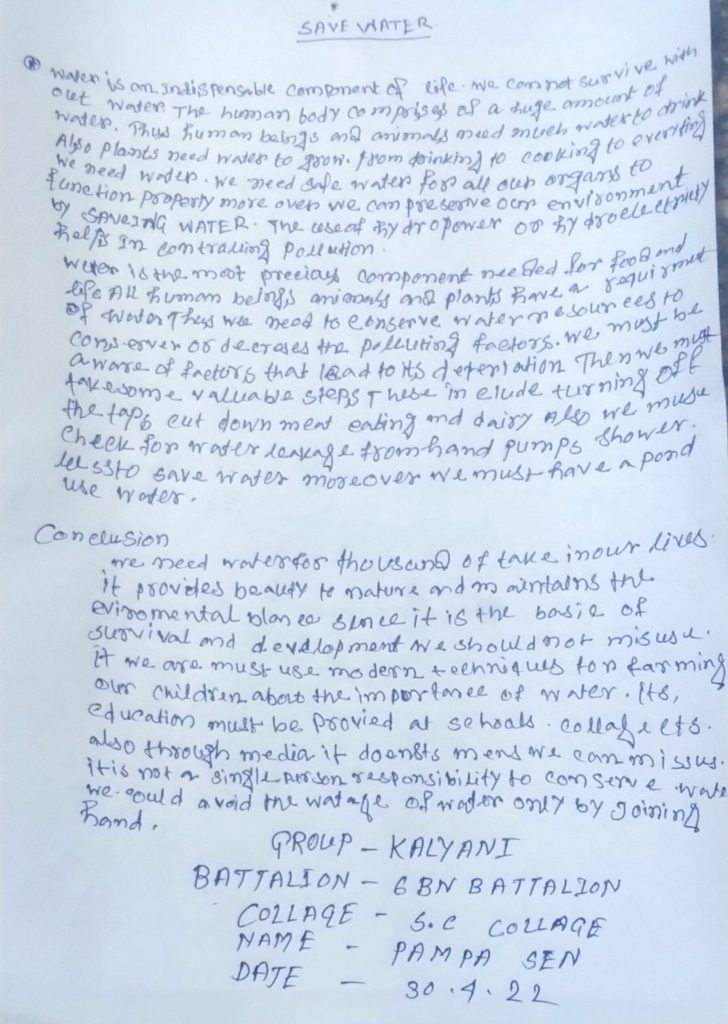 SAVE WATER
water is an indispensable component of life. we cannot survive with
out water The human body comprises of a huge amount of
water. Thus human beings and animals need much water to drink
Also plants need water to grow. from drinking to cooking to everything
we need water. we need safe water for all our organs to
function properly more over we can preserve our environment
by SAVEING WATER. The use of hydropower or hydroelectricity
helps in contraling Pollution.
water is the most precious component needed for food and
life All human beings animals and plants have a requirmet
of water Thus we need to conserve water resources to
cons-erver or decreses the polluting factors. we must be
aware of factors that lead to its deterioration Then we must
take some valuable steps These include turning off
the taps cut down meat eating and dairy Also we must
check for water leakage from hand pumps shower.
less to save water moreover we must have a pond
use water.
Conclusion
we need water for thousand of take in our lives.
it provides beauty to nature and maintains the
eviromental blance since it is the basic of
survival and development we should not misuse.
it we are must use modern techniques for farming
our children about the importance of water. Its,
education must be Provied at schoals. collage ets.
also through media it doensts mens we can missus.
it is not a single person responsibility to conserve wate
we. could avoid the watage of water only by joining
hand.
GROUP - KALYANI
BATTALION - 6BN BATTALION
COLLAGE - S.C COLLAGE
NAME - PAMPA SEN
DATE - 30.4.22